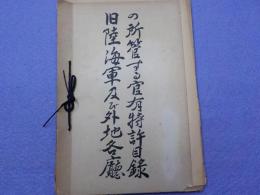 旧陸海軍及び外地各廳
の所管する官有特許目録